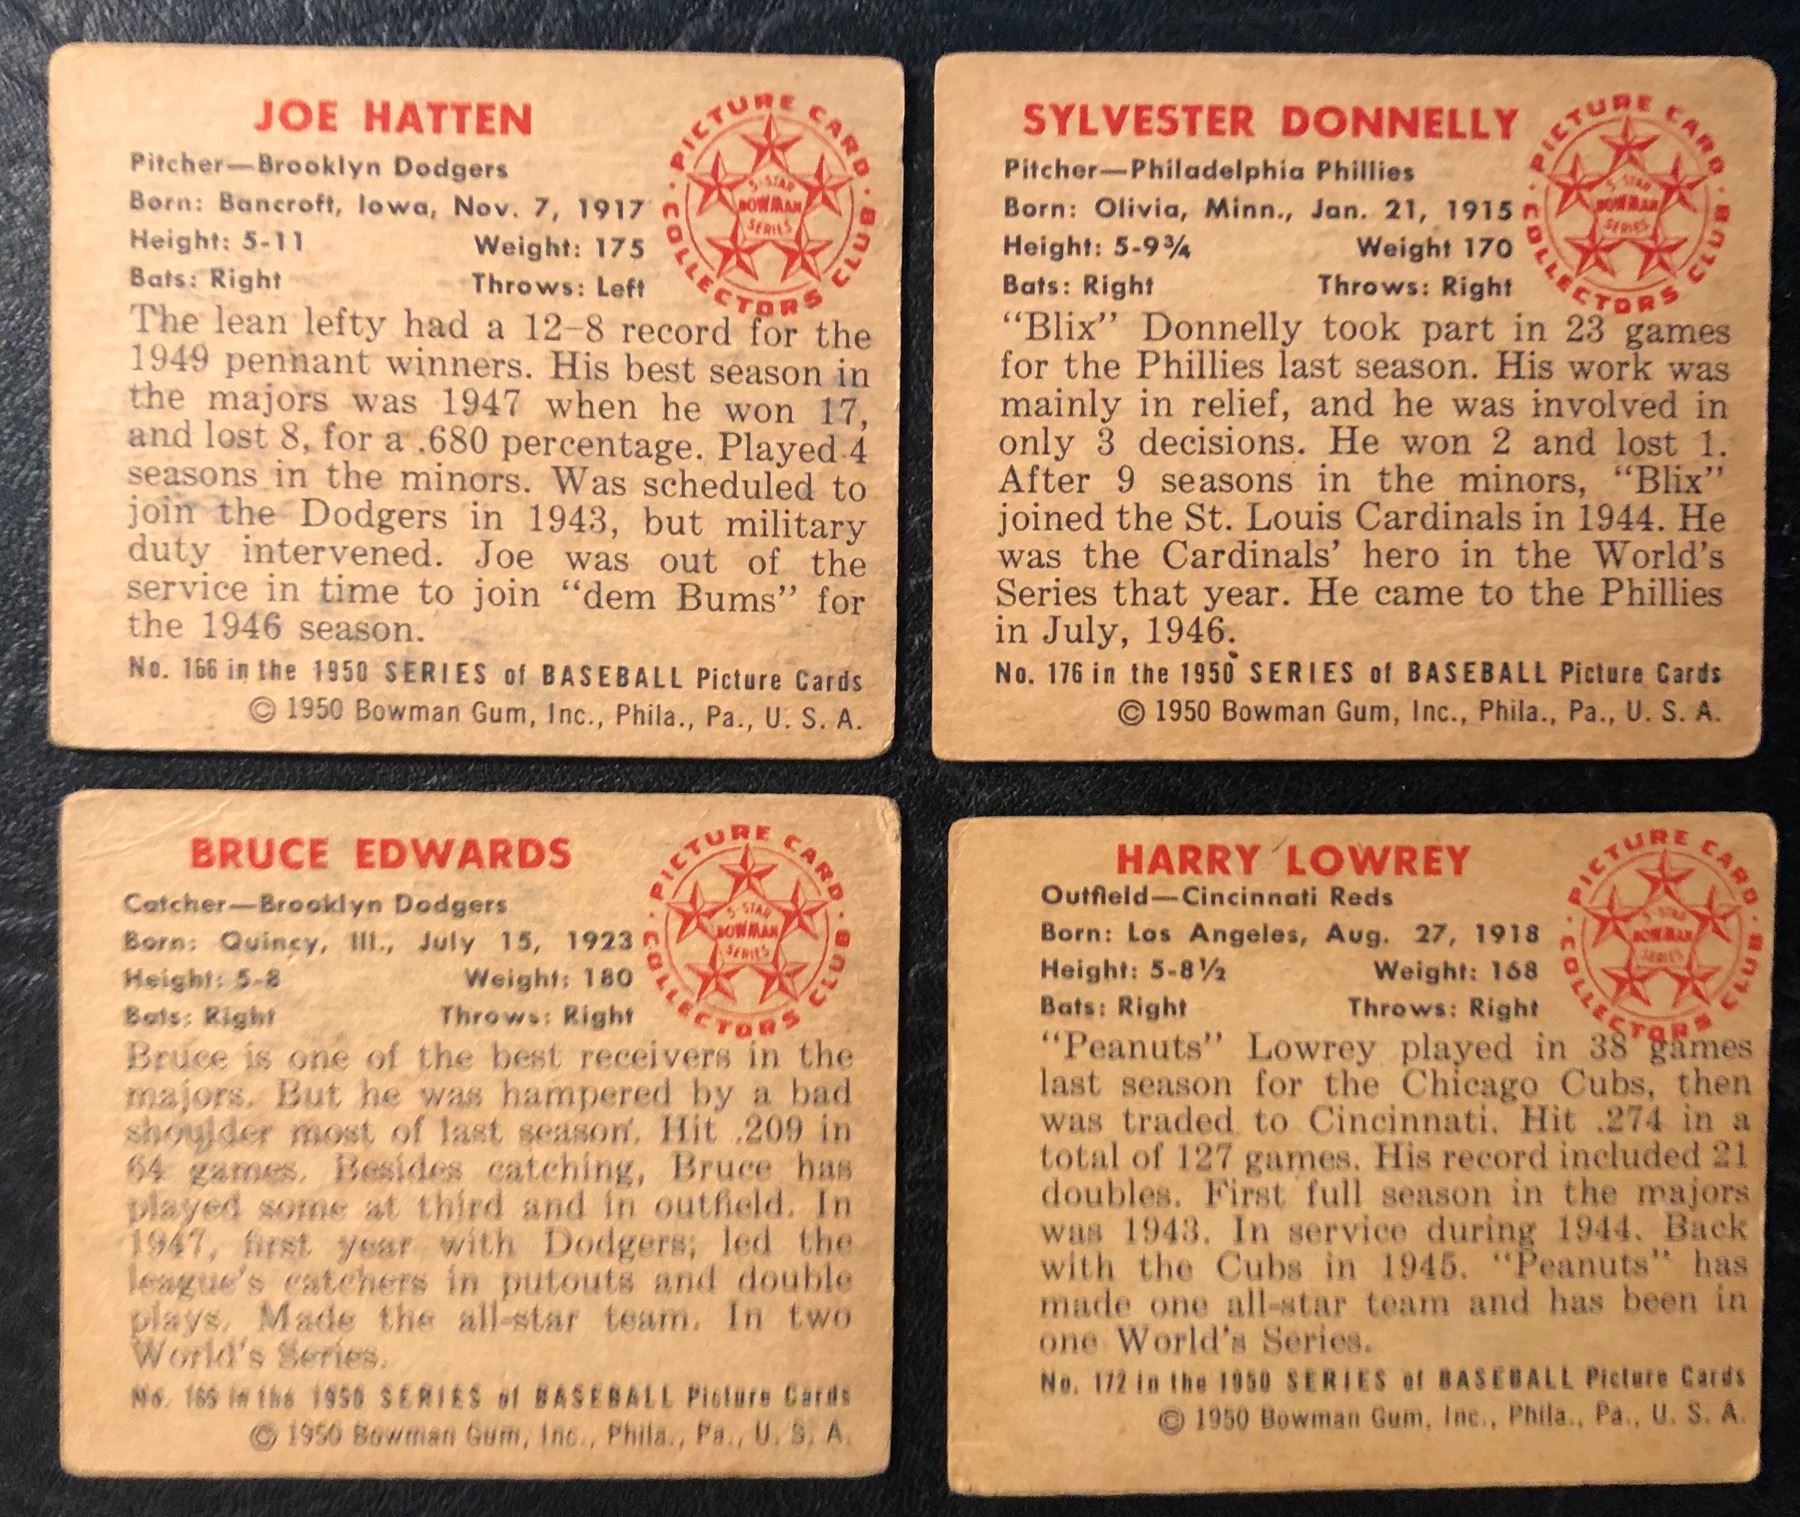 JOE HATTEN
Pitcher—Brooklyn Dodgers
Born: Bancroft, Iowa, Nov. 7, 1917
Height: 5-11 Weight: 175
Bats: Right Throws: Left
PICTURE CARD COLLECTORS CLUB
5-STAR
BOWMAN
SERIES
The lean lefty had a 12-8 record for the
1949 pennant winners. His best season in
the majors was 1947 when he won 17,
and lost 8, for a .680 percentage. Played 4
seasons in the minors. Was scheduled to
join the Dodgers in 1943, but military
duty intervened. Joe was out of the
service in time to join “dem Bums” for
the 1946 season.
No. 166 in the 1950 SERIES of BASEBALL Picture Cards
© 1950 Bowman Gum, Inc., Phila., Pa., U. S. A.
SYLVESTER DONNELLY
Pitcher—Philadelphia Phillies
Born: Olivia, Minn., Jan. 21, 1915
Height: 5-9¾ Weight 170
Bats: Right Throws: Right
PICTURE CARD COLLECTORS CLUB
5-STAR
BOWMAN
SERIES
“Blix” Donnelly took part in 23 games
for the Phillies last season. His work was
mainly in relief, and he was involved in
only 3 decisions. He won 2 and lost 1.
After 9 seasons in the minors, “Blix”
joined the St. Louis Cardinals in 1944. He
was the Cardinals’ hero in the World’s
Series that year. He came to the Phillies
in July, 1946.
No. 176 in the 1950 SERIES of BASEBALL Picture Cards
© 1950 Bowman Gum, Inc., Phila., Pa., U. S. A.
BRUCE EDWARDS
Catcher—Brooklyn Dodgers
Born: Quincy, Ill., July 15, 1923
Height: 5-8 Weight: 180
Bats: Right Throws: Right
PICTURE CARD COLLECTORS CLUB
5-STAR
BOWMAN
SERIES
Bruce is one of the best receivers in the
majors. But he was hampered by a bad
shoulder most of last season. Hit .209 in
64 games. Besides catching, Bruce has
played some at third and in outfield. In
1947, first year with Dodgers, led the
league’s catchers in putouts and double
plays. Made the all-star team. In two
World’s Series.
No. 165 in the 1950 SERIES of BASEBALL Picture Cards
© 1950 Bowman Gum, Inc., Phila., Pa., U. S. A.
HARRY LOWREY
Outfield—Cincinnati Reds
Born: Los Angeles, Aug. 27, 1918
Height: 5-8½ Weight: 168
Bats: Right Throws: Right
PICTURE CARD COLLECTORS CLUB
5-STAR
BOWMAN
SERIES
“Peanuts” Lowrey played in 38 games
last season for the Chicago Cubs, then
was traded to Cincinnati. Hit .274 in a
total of 127 games. His record included 21
doubles. First full season in the majors
was 1943. In service during 1944. Back
with the Cubs in 1945. “Peanuts” has
made one all-star team and has been in
one World’s Series.
No. 172 in the 1950 SERIES of BASEBALL Picture Cards
© 1950 Bowman Gum, Inc., Phila., Pa., U. S. A.